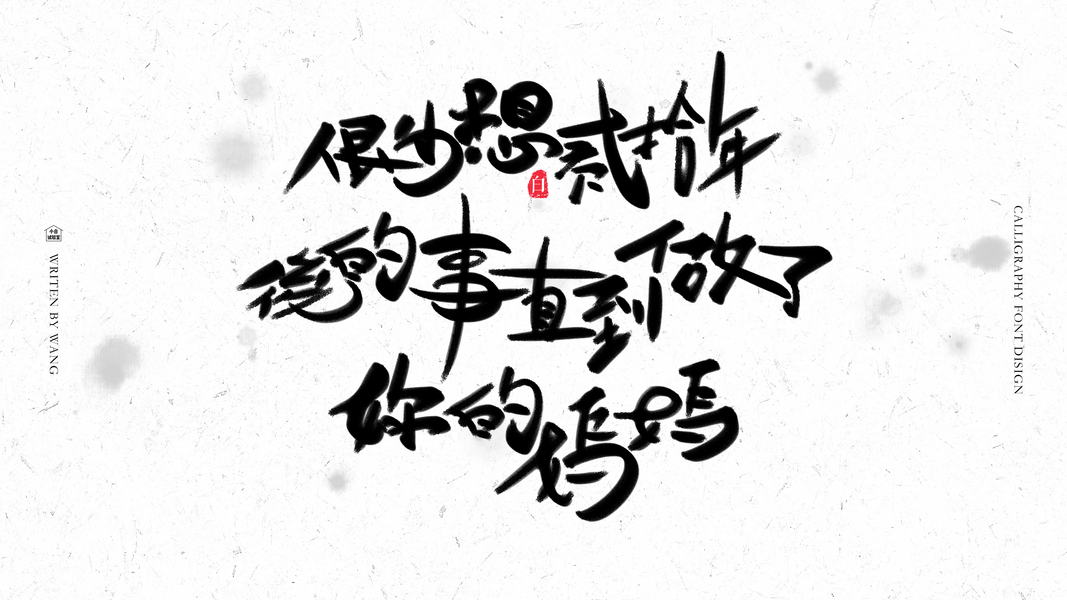 很少想贰拾年
後的事直到做了
妳的媽媽
白
WRITEN BY WANG
CALLIGRAPHY FONT DISIGN